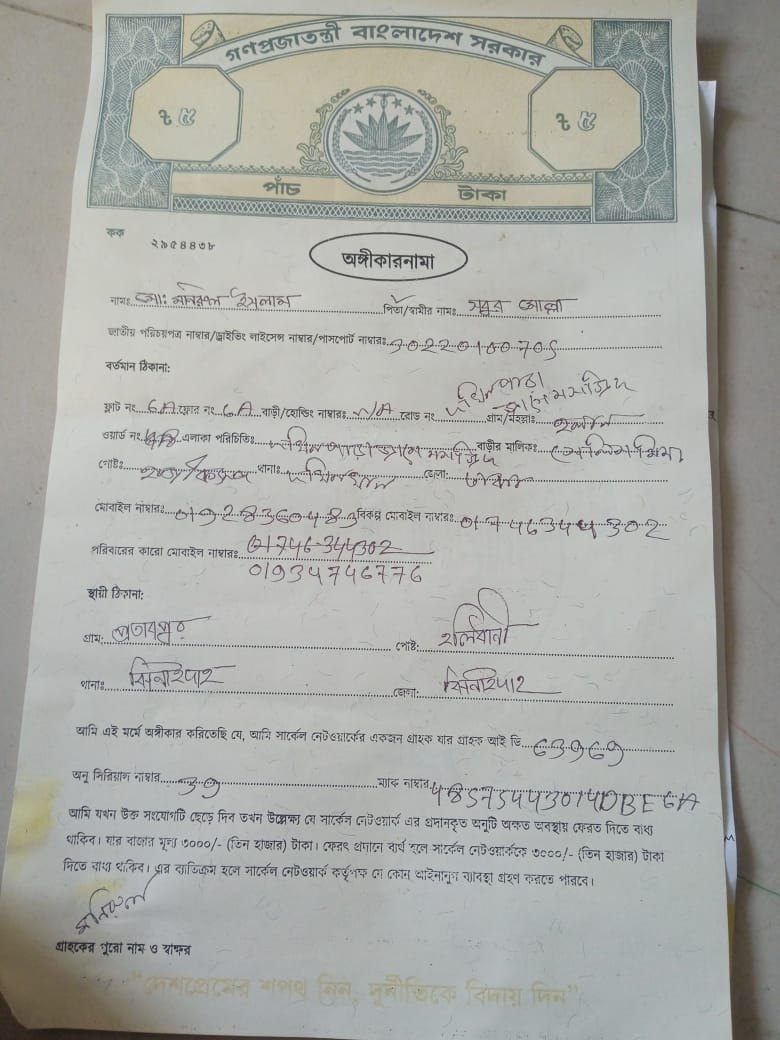 গণপ্রজাতন্ত্রী বাংলাদেশ সরকার
৳ ৫ ৳ ৫
পাঁচ টাকা
কক
২৯৫৪৪৩৮
অঙ্গীকারনামা
নামঃ মোঃ মনিরুল ইসলাম পিতা/স্বামীর নামঃ সবুর মোল্লা
জাতীয় পরিচয়পত্র নাম্বার/ড্রাইভিং লাইসেন্স নাম্বার/পাসপোর্ট নাম্বারঃ
বর্তমান ঠিকানা:
ফ্লাট নং 6A ফ্লোর নং 6A বাড়ী/হোল্ডিং নাম্বারঃ N/A রোড নং গ্রাম/মহল্লাঃ
ওয়ার্ড নং এলাকা পরিচিতিঃ বাড়ীর মালিকঃ
পোষ্টঃ থানাঃ জেলা: ঢাকা
মোবাইল নাম্বারঃ 01928360483 বিকল্প মোবাইল নাম্বারঃ 01746344302
পরিবারের কারো মোবাইল নাম্বারঃ 01746-344302
01934746776
স্থায়ী ঠিকানা:
গ্রাম: প্রতাবপুর পোষ্ট:
থানাঃ ঝিনাইদাহ জেলা: ঝিনাইদাহ
আমি এই মর্মে অঙ্গীকার করিতেছি যে, আমি সার্কেল নেটওয়ার্কের একজন গ্রাহক যার গ্রাহক আই ডি
অনু সিরিয়াল নাম্বার ম্যাক নাম্বার
আমি যখন উক্ত সংযোগটি ছেড়ে দিব তখন উল্লেক্ষ্য যে সার্কেল নেটওয়ার্ক এর প্রদানকৃত অনুটি অক্ষত অবস্থায় ফেরত দিতে বাধ্য
থাকিব। যার বাজার মূল্য ৩০০০/- (তিন হাজার) টাকা। ফেরৎ প্রদানে ব্যর্থ হলে সার্কেল নেটওয়ার্ককে ৩০০০/- (তিন হাজার) টাকা
দিতে বাধ্য থাকিব। এর ব্যতিক্রম হলে সার্কেল নেটওয়ার্ক কর্তৃপক্ষ যে কোন আইনানুগ ব্যাবস্থা গ্রহণ করতে পারবে।
মনিরুল
গ্রাহকের পুরো নাম ও স্বাক্ষর
"দেশপ্রেমের শপথ নিন, দুর্নীতিকে বিদায় দিন"